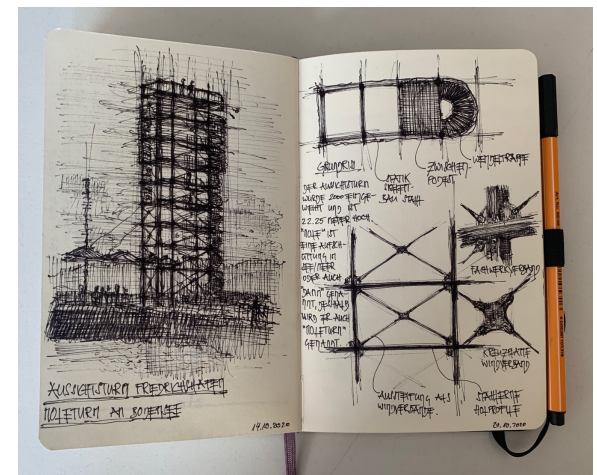 AUSSICHTSTURM FRIEDRICHSHAFEN
MOLETURM AM BODENSEE
19.10.2020
GRUNDRISS
STATIK
SKELETT-
BAU STAHL
ZWISCHEN-
PODEST
WENDELTREPPE
DER AUSSICHTSTURM
WURDE 2000 EINGE-
WEIHT UND IST
22.25 METER HOCH.
"MOLE" IST
EINE AUFSCH-
ÜTTUNG IM
ODER AUCH
"DAMM" GENA-
NNT, DESHALB
WIRD ER AUCH
"MOLETURM"
GENANNT.
FACHWERKVERBAND
KREUZPLATTE
WINDVERBAND
AUSSTEIFUNG ALS
WINDVERBÄNDE.
STÄHLERNE
HOLPROFILE
20.10.2020